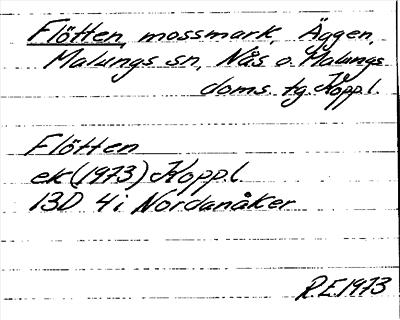 Flötten, mossmark, Äggen,
Malungs sn, Nås o. Malungs
doms. tg. Kopp. l.
Flötten
ek (1973) Kopp. l.
13D 4i Nordanåker
R.E. 1973